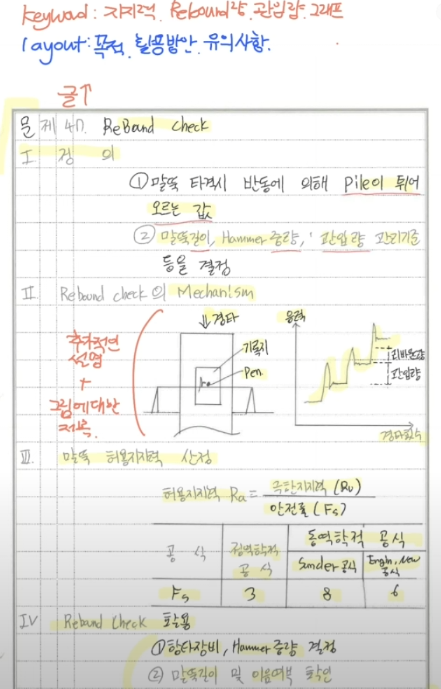 Keyword: 지지력. Rebound량. 관입량. 그래프
layout: 목적. 활용방안. 유의사항.
글↑
문제 47. ReBound check
I 정 의
① 말뚝 타격시 반동에 의해 Pile이 튀어
오르는 값
② 말뚝길이, Hammer 중량, 관입량 관리기준
등을 결정
II Rebound check의 Mechanism
추가적인
설명
+
그림에대한
제목.
↓경타
기록지
Pen
응력
리바운드량
관입량
경타횟수
III. 말뚝 허용지지력 산정
허용지지력 Ra = 극한지지력 (Ru)
안전률 (Fs)
공 식
정역학적
공 식
동역학적 공식
Sander 공식
Engin. New 공식
Fs 3 8 6
IV Rebound Check 활용
① 항타장비, Hammer 중량 결정
② 말뚝길이 및 이음여부 확인